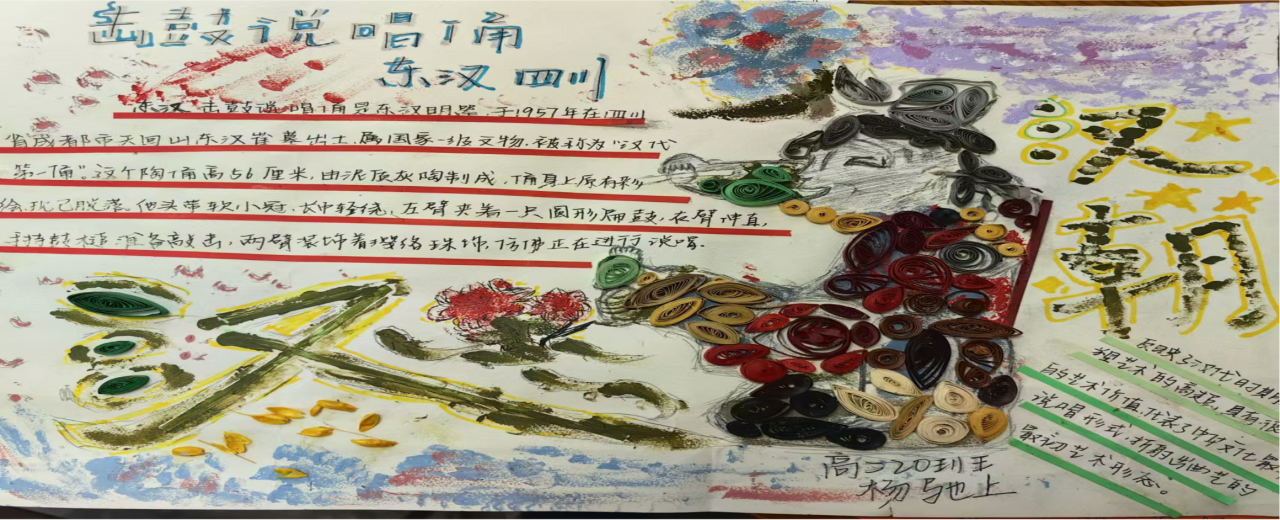 击鼓说唱俑
东汉 四川
东汉 击鼓说唱俑是东汉明器,于1957年在四川
省成都市天回山东汉崖墓出土,属国家一级文物,被称为“汉代
第一俑”。这个陶俑高56厘米,由泥质灰陶制成,俑身上原有彩
绘,现已脱落。他头带软小冠,长巾轻绕,左臂夹着一只圆形扁鼓,右臂伸直,
手持鼓槌准备敲击,两臂装饰着璎珞珠饰,仿佛正在进行说唱。
汉
汉朝
反映了汉代时期
塑艺术的高度,具有
的艺术价值,代表了中华文化最
说唱形式,折射出曲艺的
最初艺术形态。
高二20班王
杨驰上